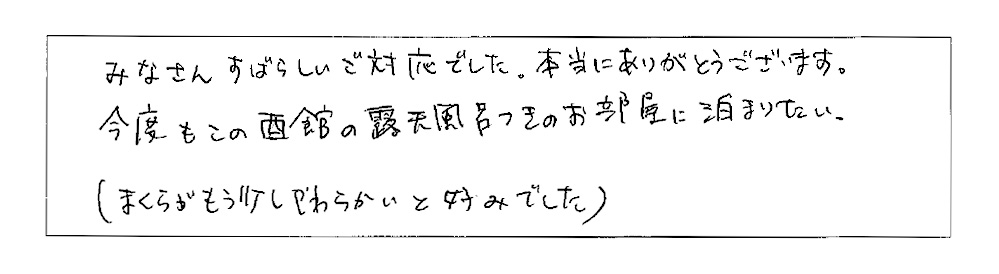 みなさんすばらしいご対応でした。本当にありがとうございます。
今度もこの酉館の露天風呂つきのお部屋に泊まりたい。
(まくらがもう少しやわらかいと好みでした)